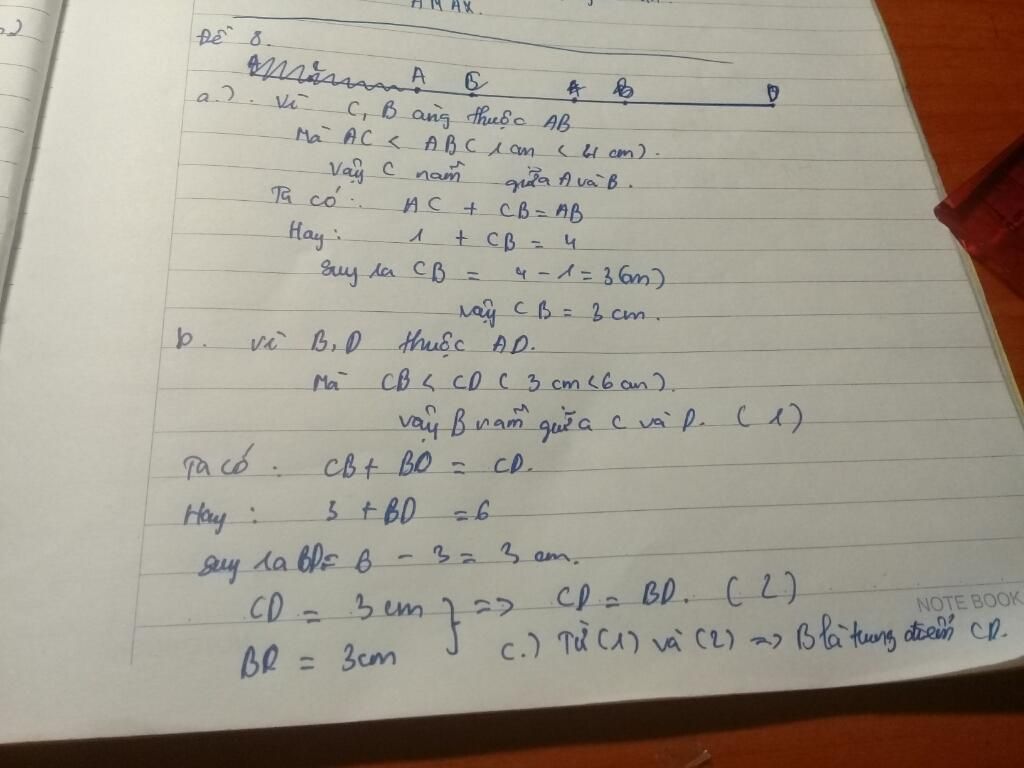 AMAX.
Đề 8.
A C A B D
a.). Vì C, B cùng thuộc AB
Mà AC < AB ( 1 cm < 4 cm).
Vậy C nằm giữa A và B.
Ta có: AC + CB = AB
Hay: 1 + CB = 4
suy ra CB = 4 - 1 = 3 (cm)
vậy CB = 3 cm.
b. Vì B, D thuộc AD.
Mà CB < CD ( 3 cm < 6 cm).
vậy B nằm giữa C và D. ( 1 )
Ta có: CB + BD = CD.
Hay: 3 + BD = 6
suy ra BD = 6 - 3 = 3 cm.
CD = 3 cm } => CD = BD. ( 2 )
BD = 3cm
c.) Từ (1) và (2) => B là trung điểm CD.
NOTE BOOK